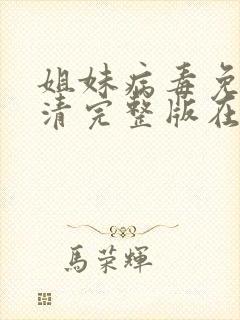 姐妹病毒免
清完整版在
馬荣輝